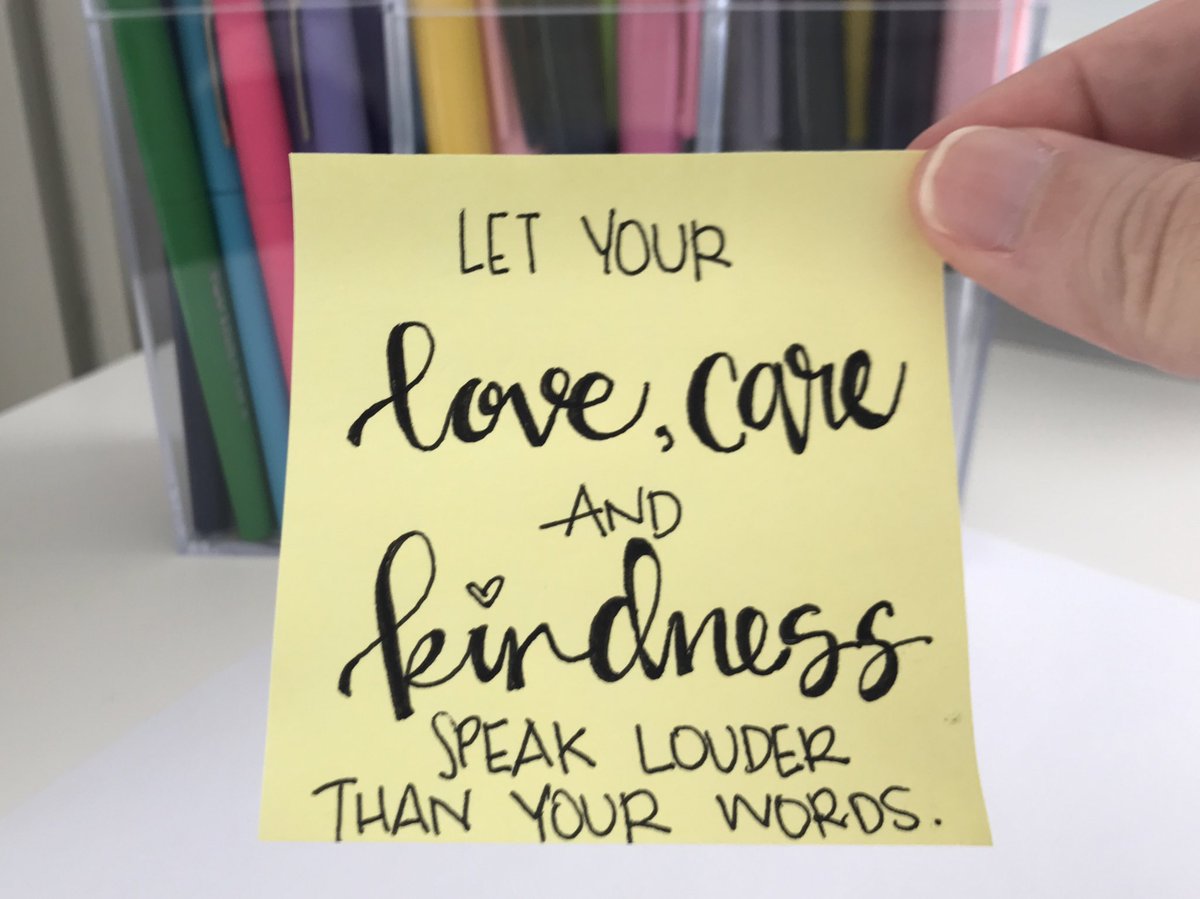 LET YOUR
love, care
AND
kindness
SPEAK LOUDER
THAN YOUR WORDS.